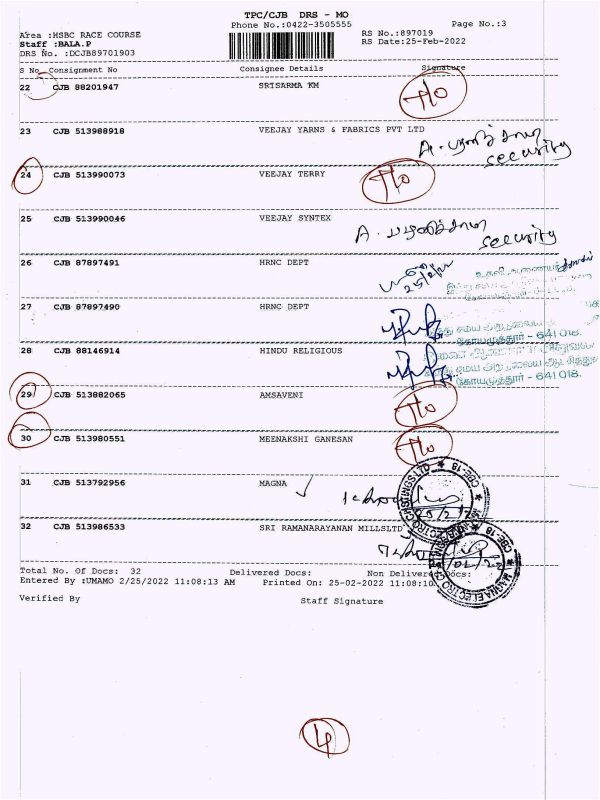 TPC/CJB DRS - MO
Phone No.:0422-3505555
Page No.:3
Area :HSBC RACE COURSE
RS No.:897019
Staff :BALA.P
RS Date:25-Feb-2022
DRS No. :DCJB89701903
S No Consignment No Consignee Details Signature
22 CJB 88201947 SRISARMA KM
23 CJB 513988918 VEEJAY YARNS & FABRICS PVT LTD
security
24 CJB 513990073 VEEJAY TERRY
25 CJB 513990046 VEEJAY SYNTEX
security
26 CJB 87897491 HRNC DEPT
25/2/22
27 CJB 87897490 HRNC DEPT
கோயமுத்தூர் - 641 018.
28 CJB 88146914 HINDU RELIGIOUS
கோயமுத்தூர் - 641 018.
29 CJB 513882065 AMSAVENI
30 CJB 513980551 MEENAKSHI GANESAN
31 CJB 513792956 MAGNA
32 CJB 513986533 SRI RAMANARAYANAN MILLSLTD
Total No. Of Docs: 32 Delivered Docs: Non Delivered Docs:
Entered By :UMAMO 2/25/2022 11:08:13 AM Printed On: 25-02-2022 11:08:10
Verified By Staff Signature
4